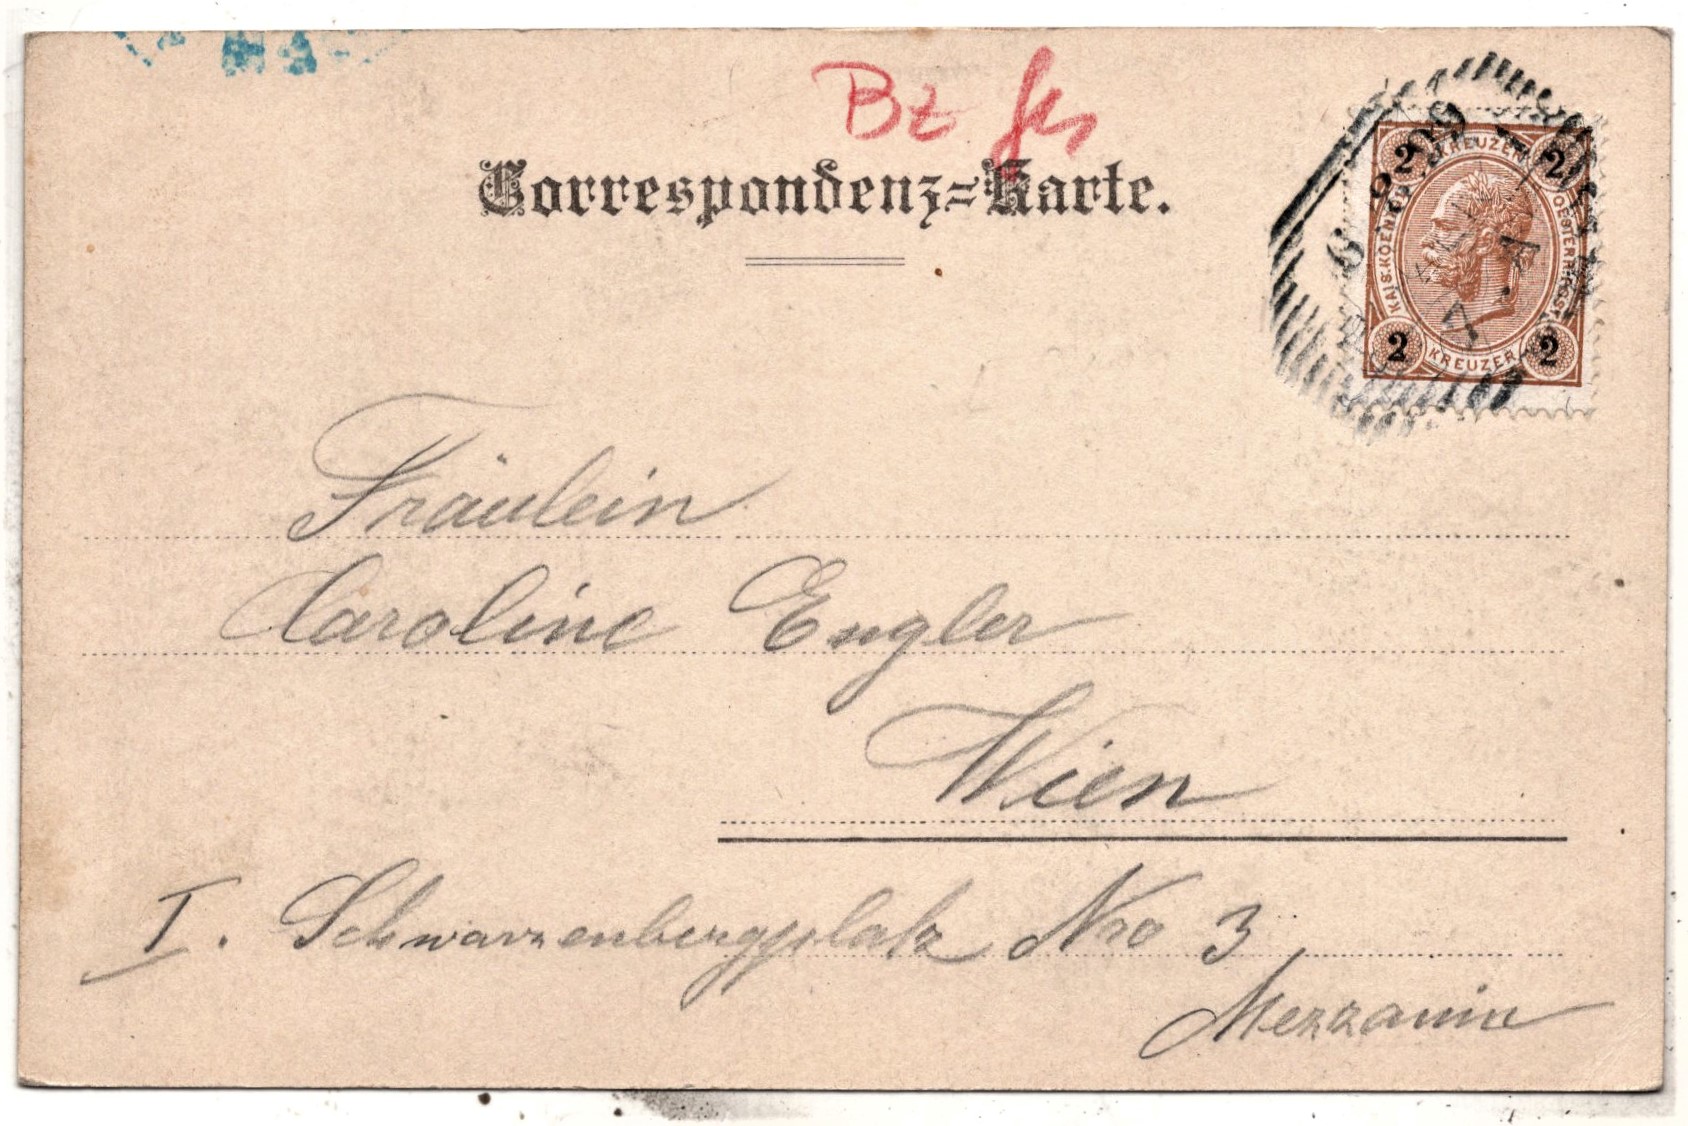 Bz
Correspondenz-Karte.
2 KREUZER 2
KAIS. KOENIGL. OESTERR. POST
2 KREUZER 2
Fräulein
Caroline Engler
Wien
I. Schwarzenbergplatz Nro 3
Mezzanin